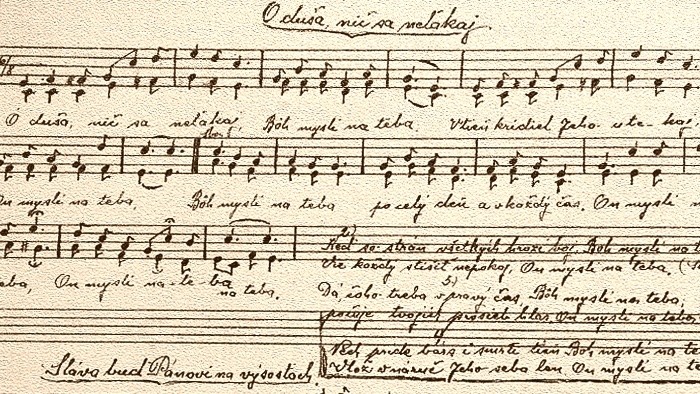 O duša, nič sa neľakaj.
6/8
O duša, nič sa neľakaj, Boh myslí na teba. V tieň krídiel Jeho ute- kaj,
On myslí na teba, Boh myslí na teba po celý deň a v každý čas. On myslí n
eba, On myslí na- te- ba
na teba.
2)
Keď so strán všetkých hrozí boj, Boh myslí na t
Vie každý stíšiť nepokoj, On myslí na teba.
3)
Dá čoho treba v pravý čas, Boh myslí na teba;
počuje tvojich prosieb hlas, On myslí na teba.
4
Nech príde búra i smrti tieň Boh myslí na te
Vlož v náruč Jeho seba len. On myslí na te
Sláva buď Pánovi na výsostach.